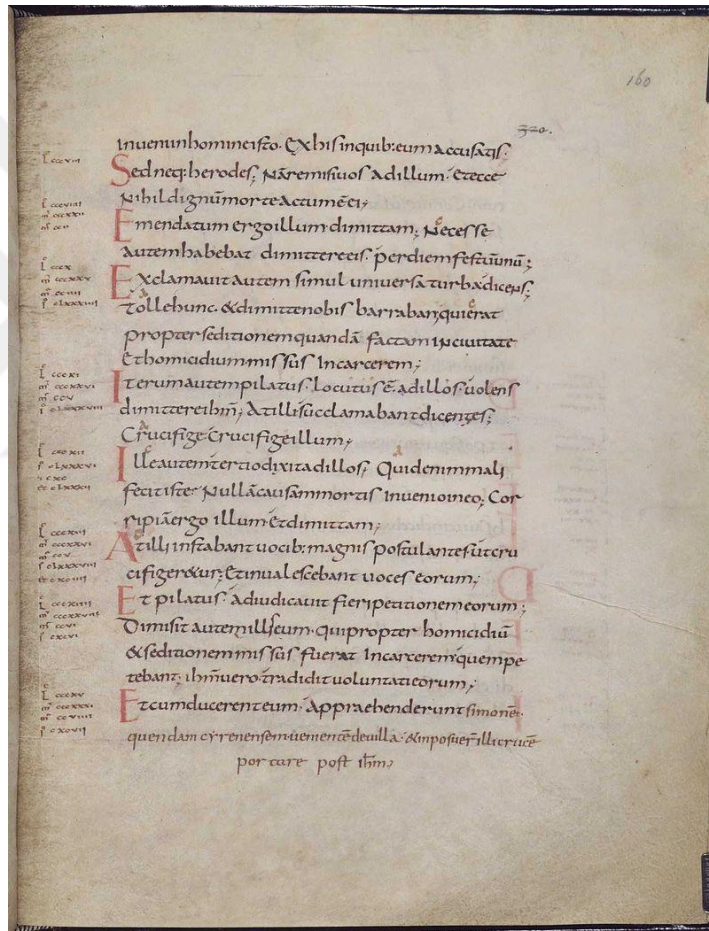 160
320.
invenin homine isto. Ex his in quib: eum accusatis.
Sed neq: herodes; Nam remisi vos ad illum. et ecce
Nihil dignum morte actum ē ei;
Emendatum ergo illum dimittam; Necesse
autem habebat dimittere eis. per diem festūunū;
Exclamavit autem simul universa turba dicens;
Tolle hunc. & dimitte nobis barraban; qui erat
propter seditionem quandā factam in civitate
Et homicidium missus In carcerem;
Iterum autem pilatus. locutus ē. ad illos. volens
dimittere ihm̄; At illi succlamabant dicentes;
Crucifige. Crucifige illum;
Ille autem tertio dixit ad illos; Quid enim mali
fecit iste; Nullā causam mortis Invenio in eo; Cor
ripiā ergo illum. Et dimittam;
At illi instabant vocib: magnis postulantes ut cru
cifigeretur; Et invalescebant voces eorum;
Et pilatus. adiudicavit fieri petitionem eorum;
Dimisit autem illis eum. qui propter homicidiū
& seditionem missus fuerat In carcerem. quem pe
tebant; ihm̄ vero. tradidit voluntati eorum;
Et cum ducerent eum. Appraehenderunt simonē.
quendam cyrenensem. venientē de villa. & imposuer̄ illi crucē
portare post ihm̄;